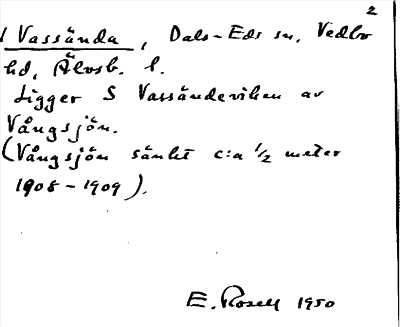 2
1 Vassända, Dals-Eds sn, Vedbo
hd, Älvsb. l.
Ligger S Vassändeviken av
Vångsjön.
(Vångsjön sänkt c:a 1/2 meter
1908-1909).
E. Rosell 1950